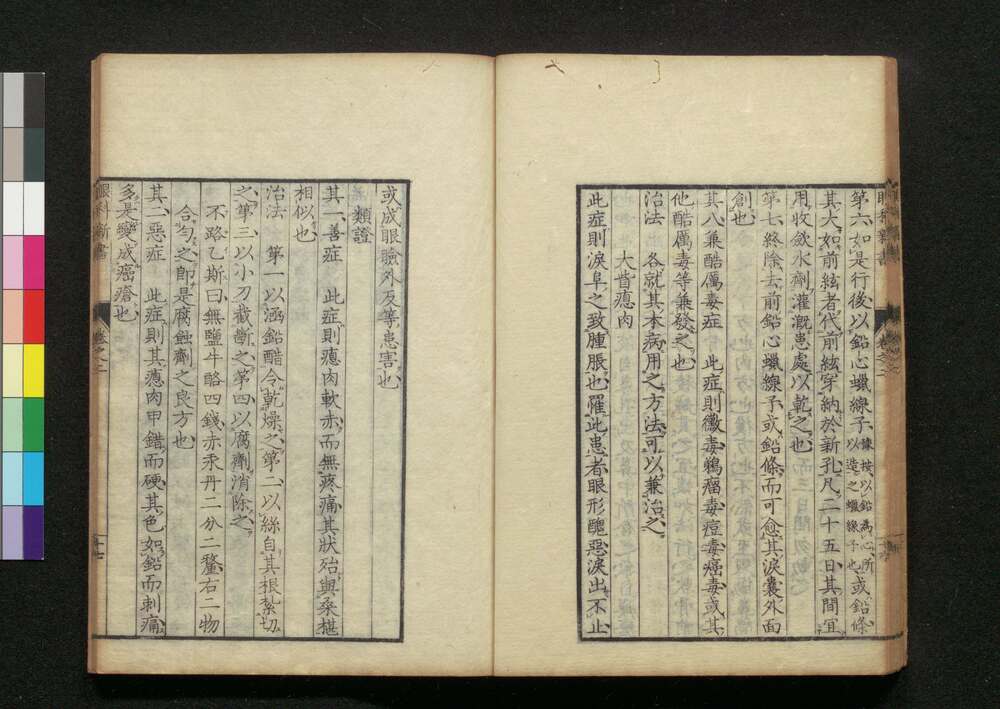 眼科新書
卷之二
第六如是行後以鉛心蠟線子據按以鉛為心所以造之蠟線子也或鉛條
其大如前絃者代前絃穿納於新孔凡二十五日其間宜
用收歛水劑灌溉患處以乾之也
第七終除去前鉛心蠟線子或鉛條而可愈其淚囊外面
創也
其八兼酷厲毒症 此症則黴毒鵝瘤毒痘毒癌毒或其
他酷厲毒等兼發之也
治法 各就其本病用之方法可以兼治之
大眥瘜肉
此症則淚阜之致腫脹也罹此患者眼形醜惡淚出不止
或成眼瞼外反等患害也
類證
其一善症 此症則瘜肉軟赤而無疼痛其狀殆與桑椹
相似也
治法 第一以涵鉛醋令乾燥之第二以絲自其根紮切
之第三以小刃截斷之第四以腐劑消除之
不路乙斯曰無鹽牛酪四錢赤汞丹二分二釐右二物
合勻之即是腐蝕劑之良方也
其二惡症 此症則其瘜肉甲錯而硬其色如鉛而刺痛
多是變成癌瘡也
眼科新書
卷之二
十七